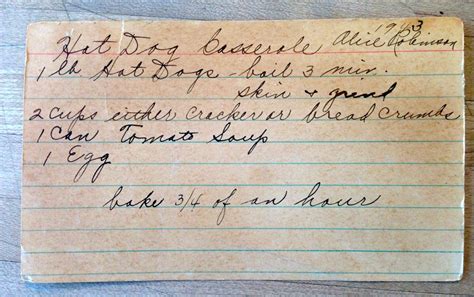 1943
Hot Dog Casserole Alice Robinson
1 lb Hot Dogs - boil 3 min.
skin & grind
2 cups either cracker or bread crumbs
1 can Tomato Soup
1 Egg
bake 3/4 of an hour